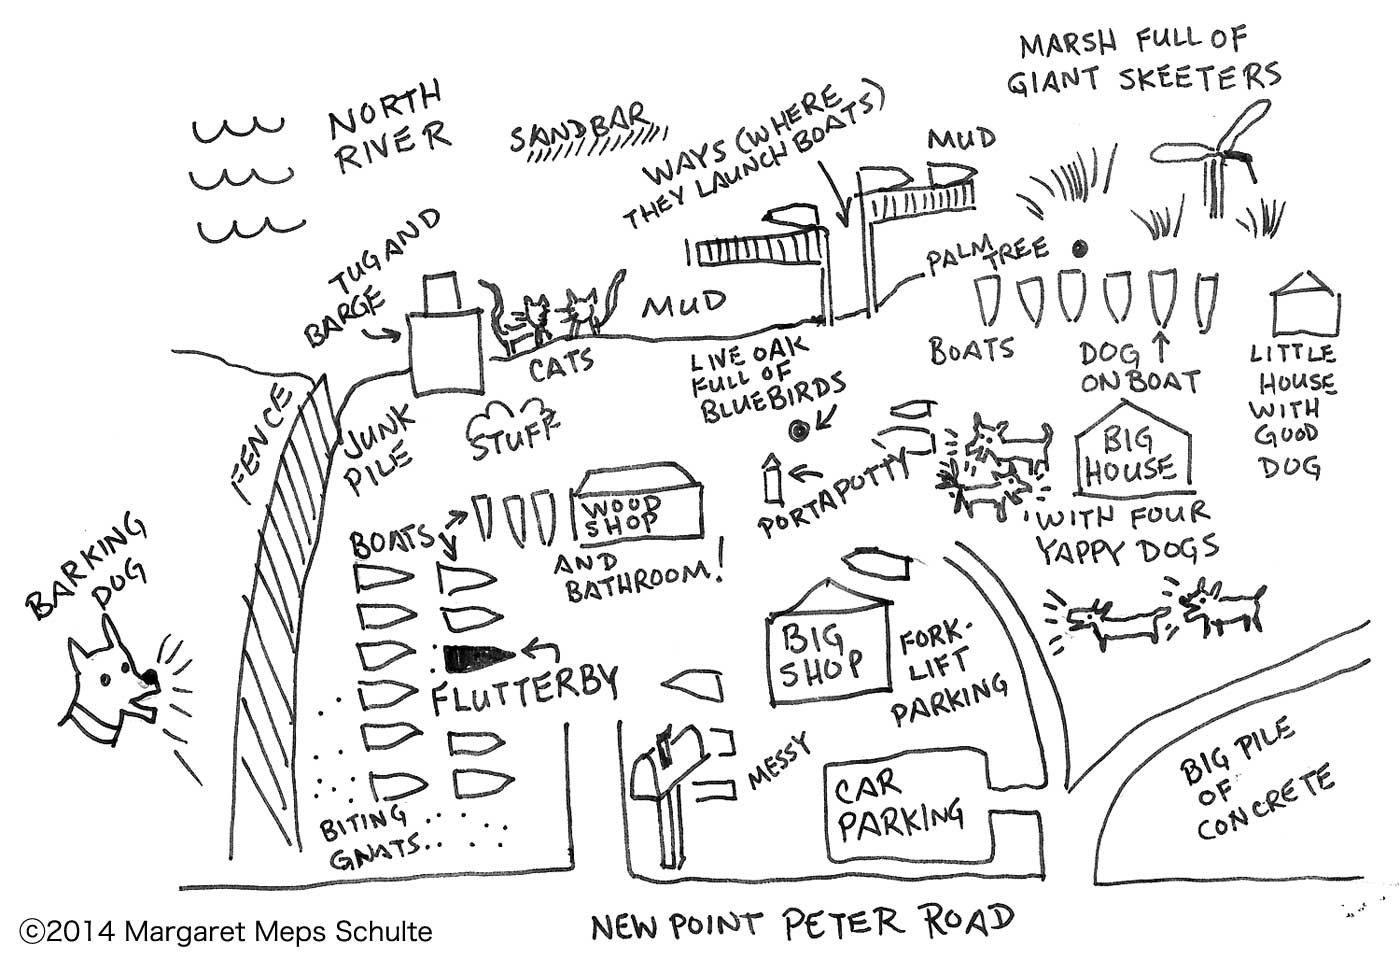 MARSH FULL OF
GIANT SKEETERS
NORTH
RIVER
SANDBAR
WAYS (WHERE
THEY LAUNCH BOATS)
MUD
TUG AND
BARGE
PALM
TREE
MUD
CATS
LIVE OAK
FULL OF
BLUEBIRDS
BOATS
DOG
ON BOAT
LITTLE
HOUSE
WITH
GOOD
DOG
FENCE
JUNK
PILE
STUFF
BIG
HOUSE
WITH FOUR
YAPPY DOGS
PORTAPOTTY
WOOD
SHOP
AND
BATHROOM!
BOATS
BARKING
DOG
BIG
SHOP
FORK-
LIFT
PARKING
FLUTTERBY
MESSY
CAR
PARKING
BIG PILE
OF
CONCRETE
BITING
GNATS
NEW POINT PETER ROAD
©2014 Margaret Meps Schulte